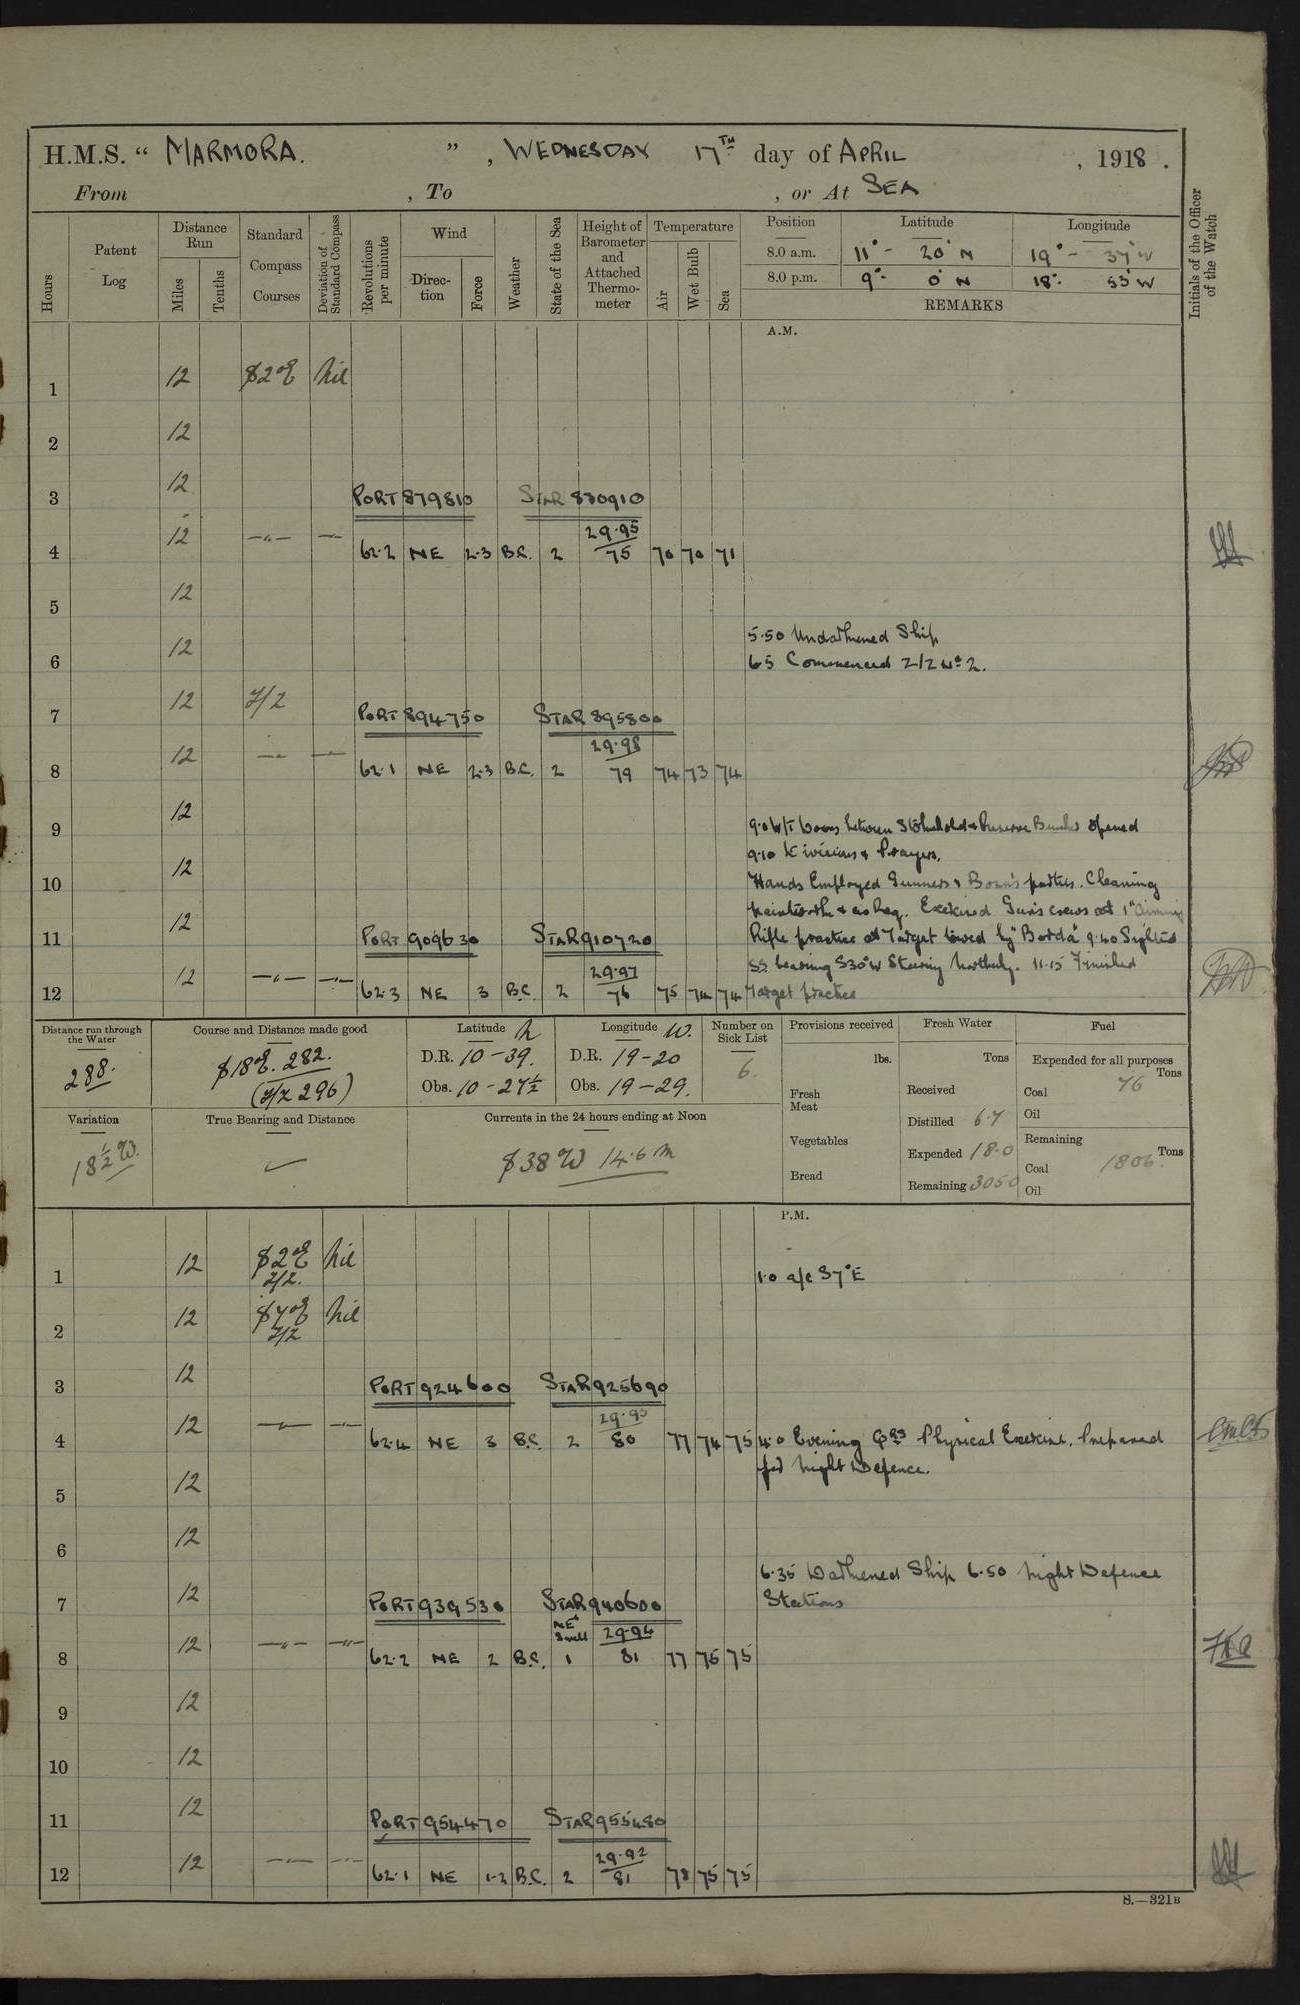 H.M.S. " MARMORA. ", WEDNESDAY 17TH day of APRIL, 1918.
From , To , or At SEA
Hours
Patent Log
Distance Run
Miles
Tenths
Standard Compass Courses
Deviation of Standard Compass
Revolutions per minute
Wind
Direction
Force
Weather
State of the Sea
Height of Barometer and Attached Thermometer
Temperature
Air
Wet Bulb
Sea
Position Latitude Longitude
8.0 a.m. 11° - 20' N 19° - 37' W
8.0 p.m. 9° 0' N 18° 53' W
REMARKS
Initials of the Officer of the Watch
A.M.
1 12 S2°E Nil
2 12
3 12 PORT 879810 STAR 880910
4 12 —"— — 62.2 NE 2.3 B.C. 2 29.95 75 70 70 71
5 12
5.50 Undarkened Ship
6 12 6.5 Commenced Z/Z No 2.
7 12 Z/Z PORT 894750 STAR 895800
8 12 —"— — 62.1 NE 2.3 B.C. 2 29.98 79 74 73 74
9 12 9.0 W/T Doors between Stokehold & Reserve Bunker opened
9.10 Divisions & Prayers.
10 12 Hands Employed Gunners & Bosn's parties. Cleaning
paintwork & as Req. Exercised Gun's crews at 1" Aiming
11 12 PORT 909630 STAR 910720 Rifle practice at Target towed by "Borda" 9.40 Sighted
SS. bearing S30°W Steering Northerly. 11.15 Finished
12 12 —"— —"— 62.3 NE 3 B.C. 2 29.97 76 75 74 74 Target practice
Distance run through the Water
288.
Course and Distance made good
S18E. 282.
(Z/Z 296)
Latitude N
D.R. 10-39.
Obs. 10-27½
Longitude W.
D.R. 19-20
Obs. 19-29.
Number on Sick List
6.
Provisions received
lbs.
Fresh Meat
Vegetables
Bread
Fresh Water
Tons
Received
Distilled 67
Expended 180
Remaining 3050
Fuel
Expended for all purposes
Tons
Coal 76
Oil
Remaining
Tons
Coal 1806.
Oil
Variation
18½W.
True Bearing and Distance
Currents in the 24 hours ending at Noon
S38W 14.6 m
P.M.
1 12 S2°E Z/Z. Nil 1.0 a/c S7°E
2 12 S7°E Z/Z Nil
3 12 PORT 924600 STAR 925690
4 12 —"— —"— 62.4 NE 3 B.C. 2 29.93 80 77 74 75 4.0 Evening Qrs Physical Exercise. Prepared
for Night Defence.
5 12
6 12
6.35 Darkened Ship 6.50 Night Defence
7 12 PORT 939530 STAR 940600 Stations
8 12 —"— —"— 62.2 NE 2 B.C. NE Swell 1 29.94 81 77 75 75
9 12
10 12
11 12 PORT 954470 STAR 955480
12 12 —"— —"— 62.1 NE 1-2 B.C. 2 29.92 81 78 75 75
S.—321B